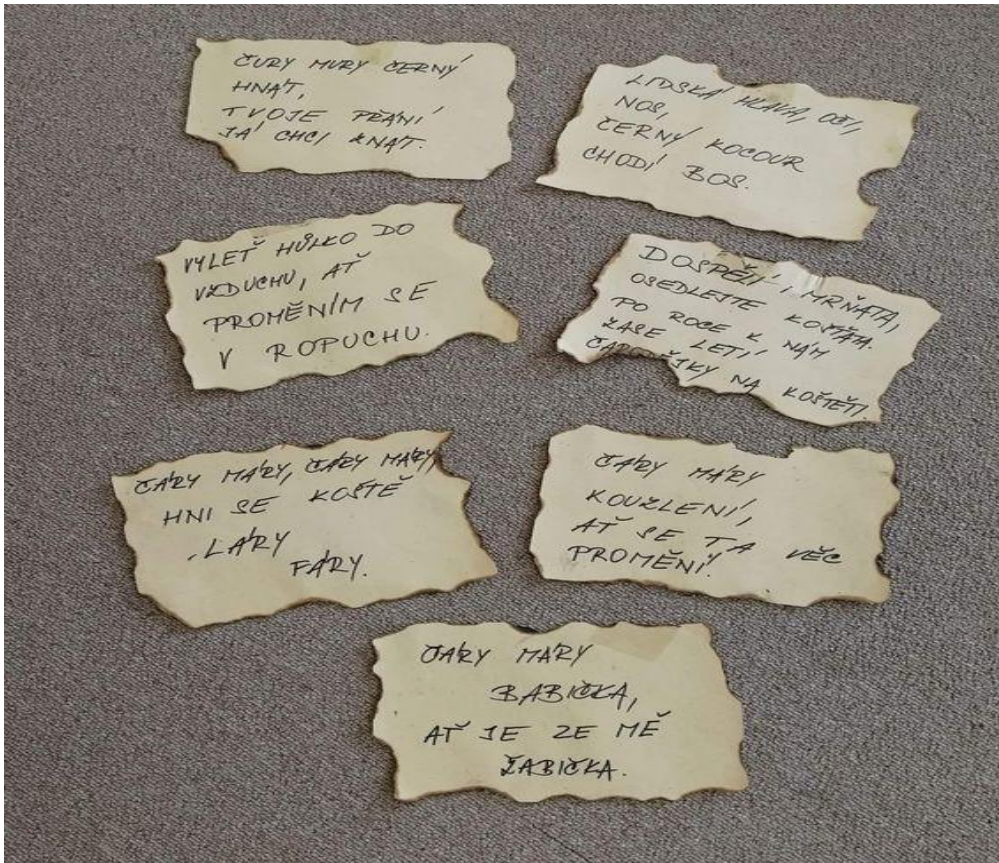 ČURY MURY ČERNÝ
HNÁT,
TVOJE PŘÁNÍ
JÁ CHCI ZNÁT.
LIDSKÁ HLAVA, OČI,
NOS,
ČERNÝ KOCOUR
CHODÍ BOS.
VYLEŤ HŮLKO DO
VZDUCHU, AŤ
PROMĚNÍM SE
V ROPUCHU.
DOSPĚLÍ, MRŇATA,
OSEDLEJTE KOŠŤATA.
PO ROCE K NÁM
ZASE LETÍ
ČARODĚJKY NA KOŠTĚTI.
ČÁRY MÁRY, ČÁRY MÁRY,
HNI SE KOŠTĚ
LÁRY
FÁRY.
ČÁRY MÁRY
KOUZLENÍ,
AŤ SE TA VĚC
PROMĚNÍ.
ČÁRY MÁRY
BABIČKA,
AŤ JE ZE MĚ
ŽABIČKA.